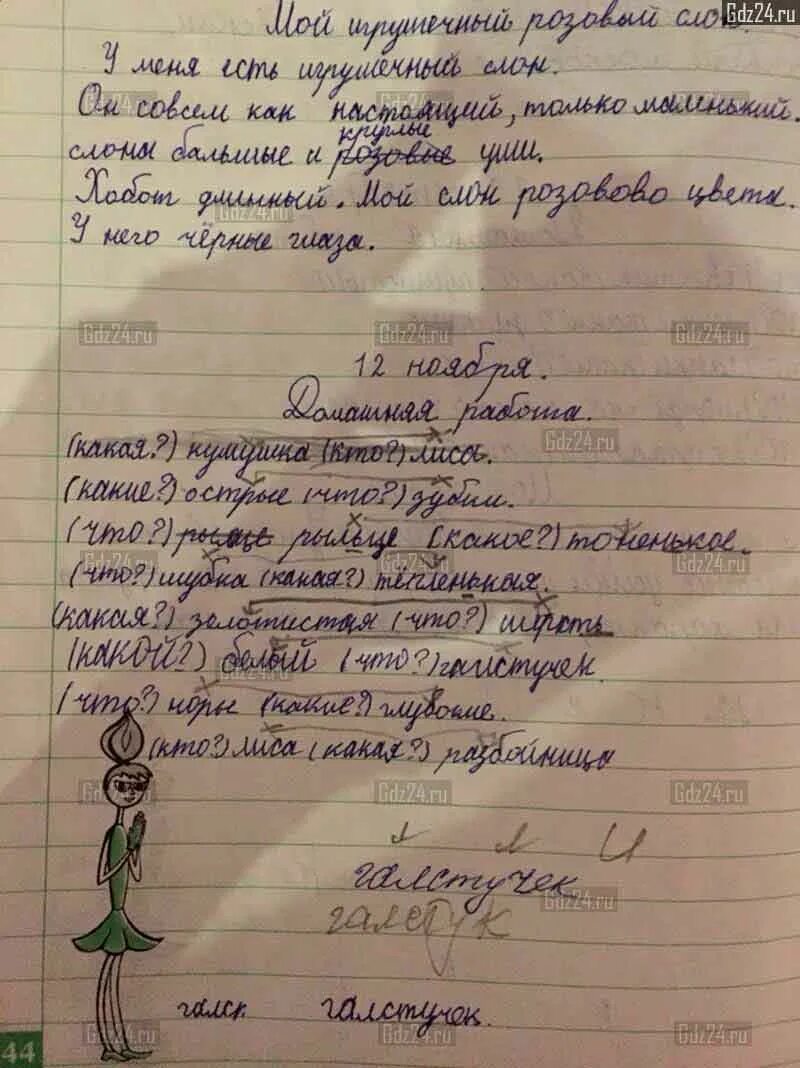 Мой игрушечный розовый слон.
У меня есть игрушечный слон.
Он совсем как настоящий, только маленький.
круглые
слона бальшые и розовые уши.
Хобот длинный. Мой слон розовово цвета.
У него чёрные глаза.
12 ноября.
Домашняя работа.
(какая?) кумушка (кто?) лиса.
(какие?) острые (что?) зубки.
(что?) рыльце (какое?) тоненькое.
(что?) шубка (какая?) тёпленькая.
(какая?) золотистая (что?) шерсть
(какой?) белый (что?) галстучек.
(что?) норы (какие?) глубокие.
(кто?) лиса (какая?) разбойница
галстучек
галстук
галск галстучек.
44
Gdz24.ru